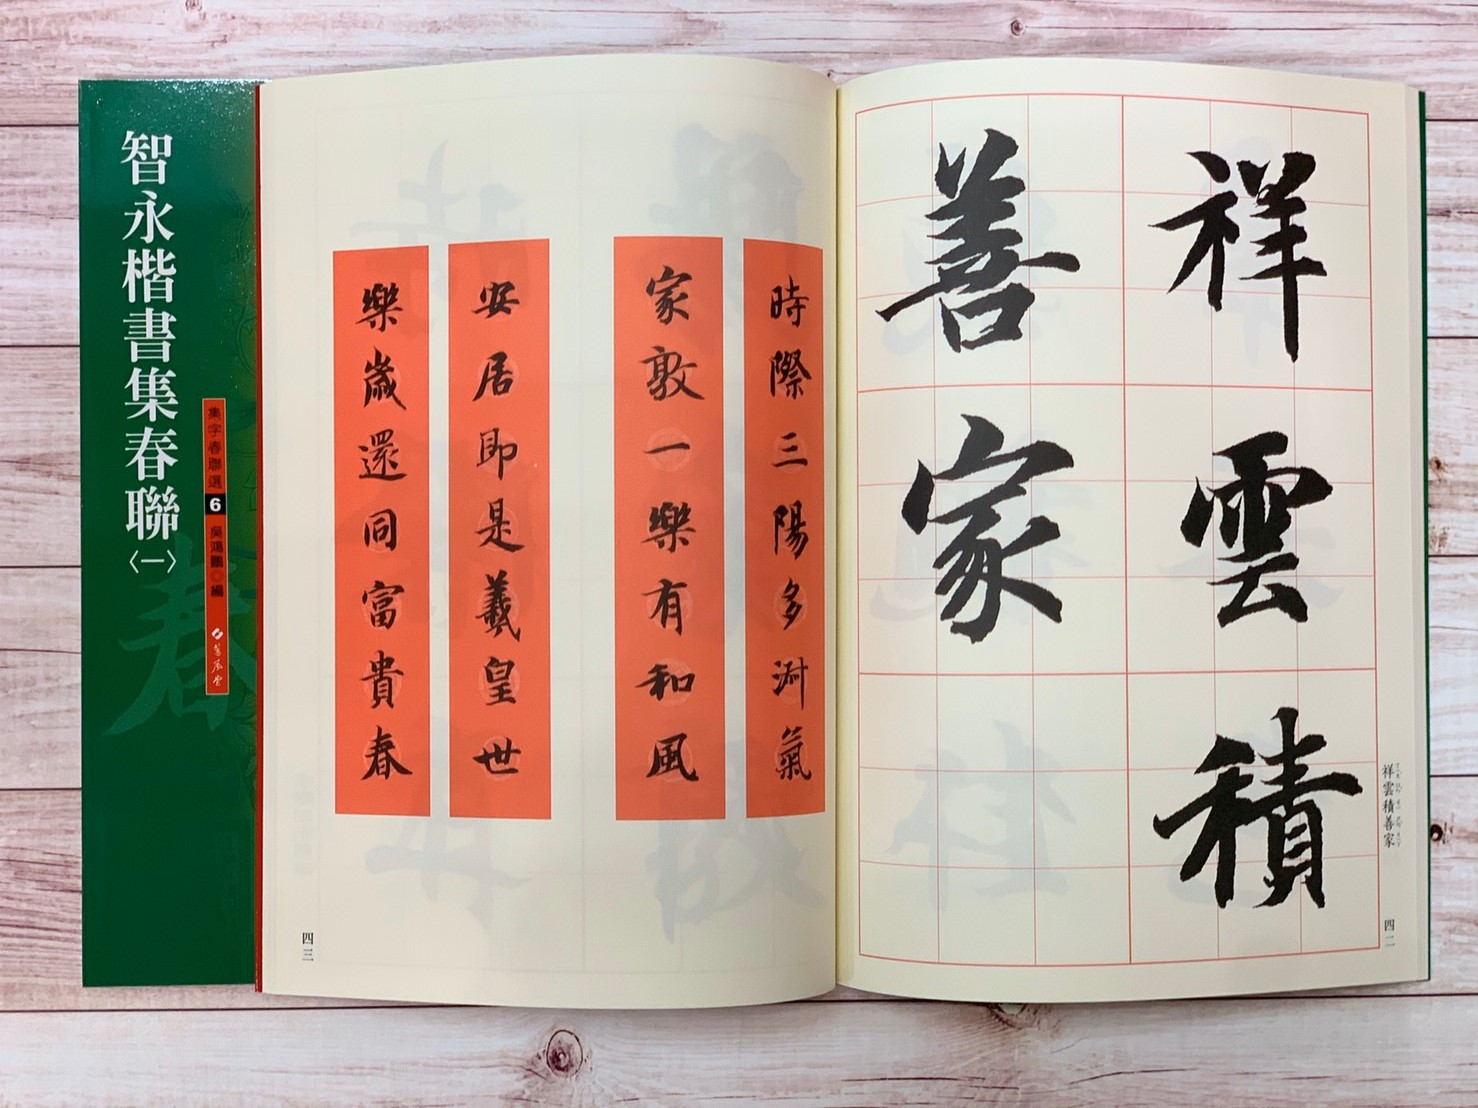 智永楷書集春聯〈一〉
集字春聯選 6 吳鴻鵬◎編
蕙風堂
祥雲積
善家
祥雲積善家
四二
時際三陽多淑氣
家敦一樂有和風
安居即是羲皇世
樂歲還同富貴春
四三